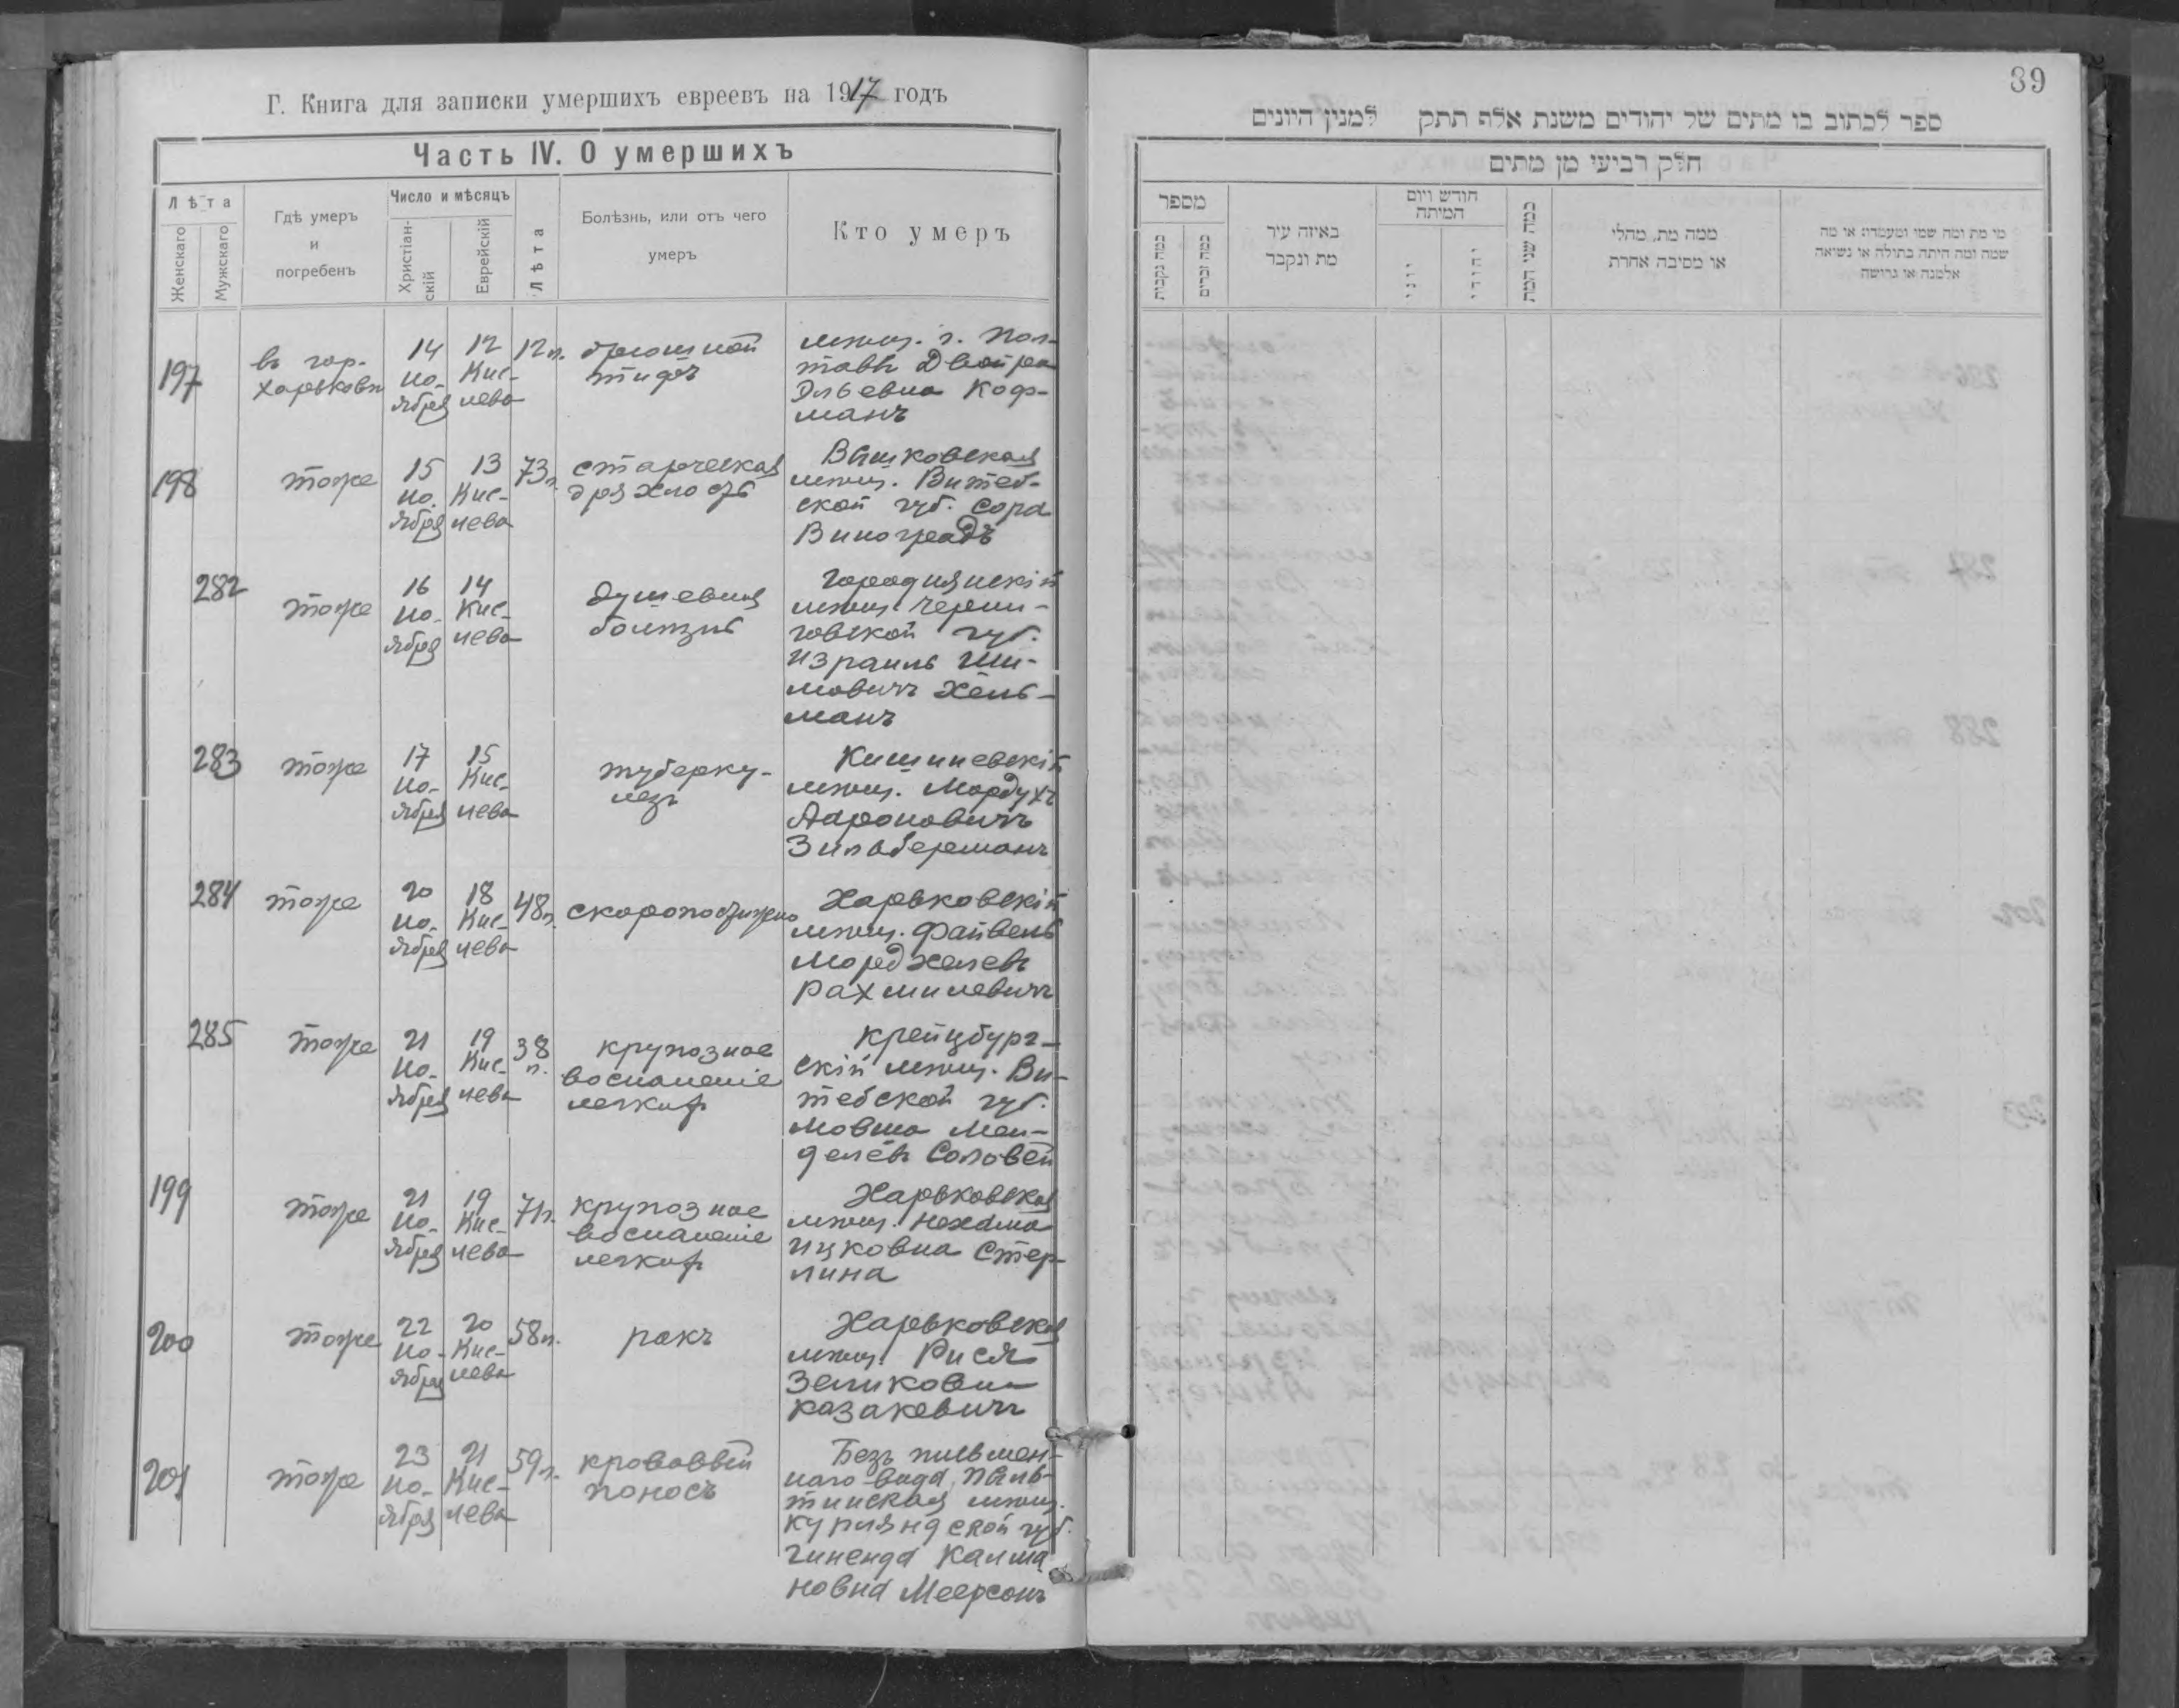 Г. Книга для записки умершихъ евреевъ на 1917 годъ
Часть IV. О умершихъ
Лѣта
Женскаго
Мужскаго
Гдѣ умеръ
и
погребенъ
Число и мѣсяцъ
Христіан-
скій
Еврейскій
Лѣта
Болѣзнь, или отъ чего
умеръ
Кто умеръ
197
въ гор.
Харьковѣ
14
но-
ября
12
Кис-
лева
12 л.
брюшной
тифъ
мѣщ. г. Пол-
тавы Двойра
Коф-
манъ
198
тоже
15
но-
ября
13
Кис-
лева
73 л.
старческая
дряхлость
мѣщ. Витеб-
ской губ. Сора
Виноградъ
282
тоже
16
но-
ября
14
Кис-
лева
душевная
болѣзнь
Городнянскій
мѣщ. Черни-
говской губ.
Израиль Ши-
мовичъ Хень-
манъ
283
тоже
17
но-
ября
15
Кис-
лева
туберку-
лезъ
Кишиневскій
мѣщ. Мордухъ
Ароновичъ
Зильберманъ
284
тоже
20
но-
ября
18
Кис-
лева
48 л.
скоропостижно
Харьковскій
мѣщ. Файвель
Мордхелевъ
Рахмилевичъ
285
тоже
21
но-
ября
19
Кис-
лева
38
л.
крупозное
воспаленіе
легкихъ
Крейцбург-
скій мѣщ. Ви-
тебской губ.
Мовша Мен-
делевъ Соловей
199
тоже
21
но-
ября
19
Кис-
лева
71 л.
крупозное
воспаленіе
легкихъ
Харьковская
мѣщ. Нехама
Ицковна Стер-
лина
200
тоже
22
но-
ября
20
Кис-
лева
58 л.
ракъ
Харьковская
мѣщ. Рися
Зеликовна
Казакевичъ
201
тоже
23
но-
ября
21
Кис-
лева
59 л.
кровавый
поносъ
Безъ письмен-
наго вида, Пиль-
тинская мѣщ.
Курляндской губ.
Гиненда Калма
новна Меерсонъ
39
ספר לכתוב בו מתים של יהודים משנת אלף תתק למנין היונים
חלק רביעי מן מתים
מספר
כמה נקבות
כמה זכרים
באיזה עיר
מת ונקבר
חודש ויום
המיתה
יוני
יהודי
כמה שני המת
ממה מת, מחלי
או מסיבה אחרת
מי מת ומה שמו ומעמדו: או מה
שמה ומה היתה בתולה או נשיאה
אלמנה או גרושה